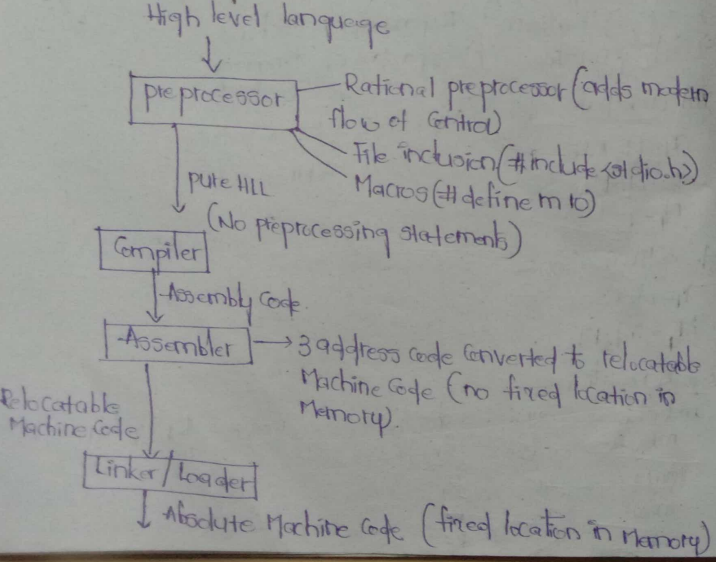 High level language
preprocessor
Rational preprocessor (adds modern
flow of control)
File inclusion (#include<stdio.h>)
Macros (#define m 10)
pure HLL
(No preprocessing statements)
Compiler
Assembly code.
Assembler
3 address code converted to relocatable
Machine Code (no fixed location in
Memory).
Relocatable
Machine Code
Linker/Loader
Absolute Machine Code (fixed location in Memory)